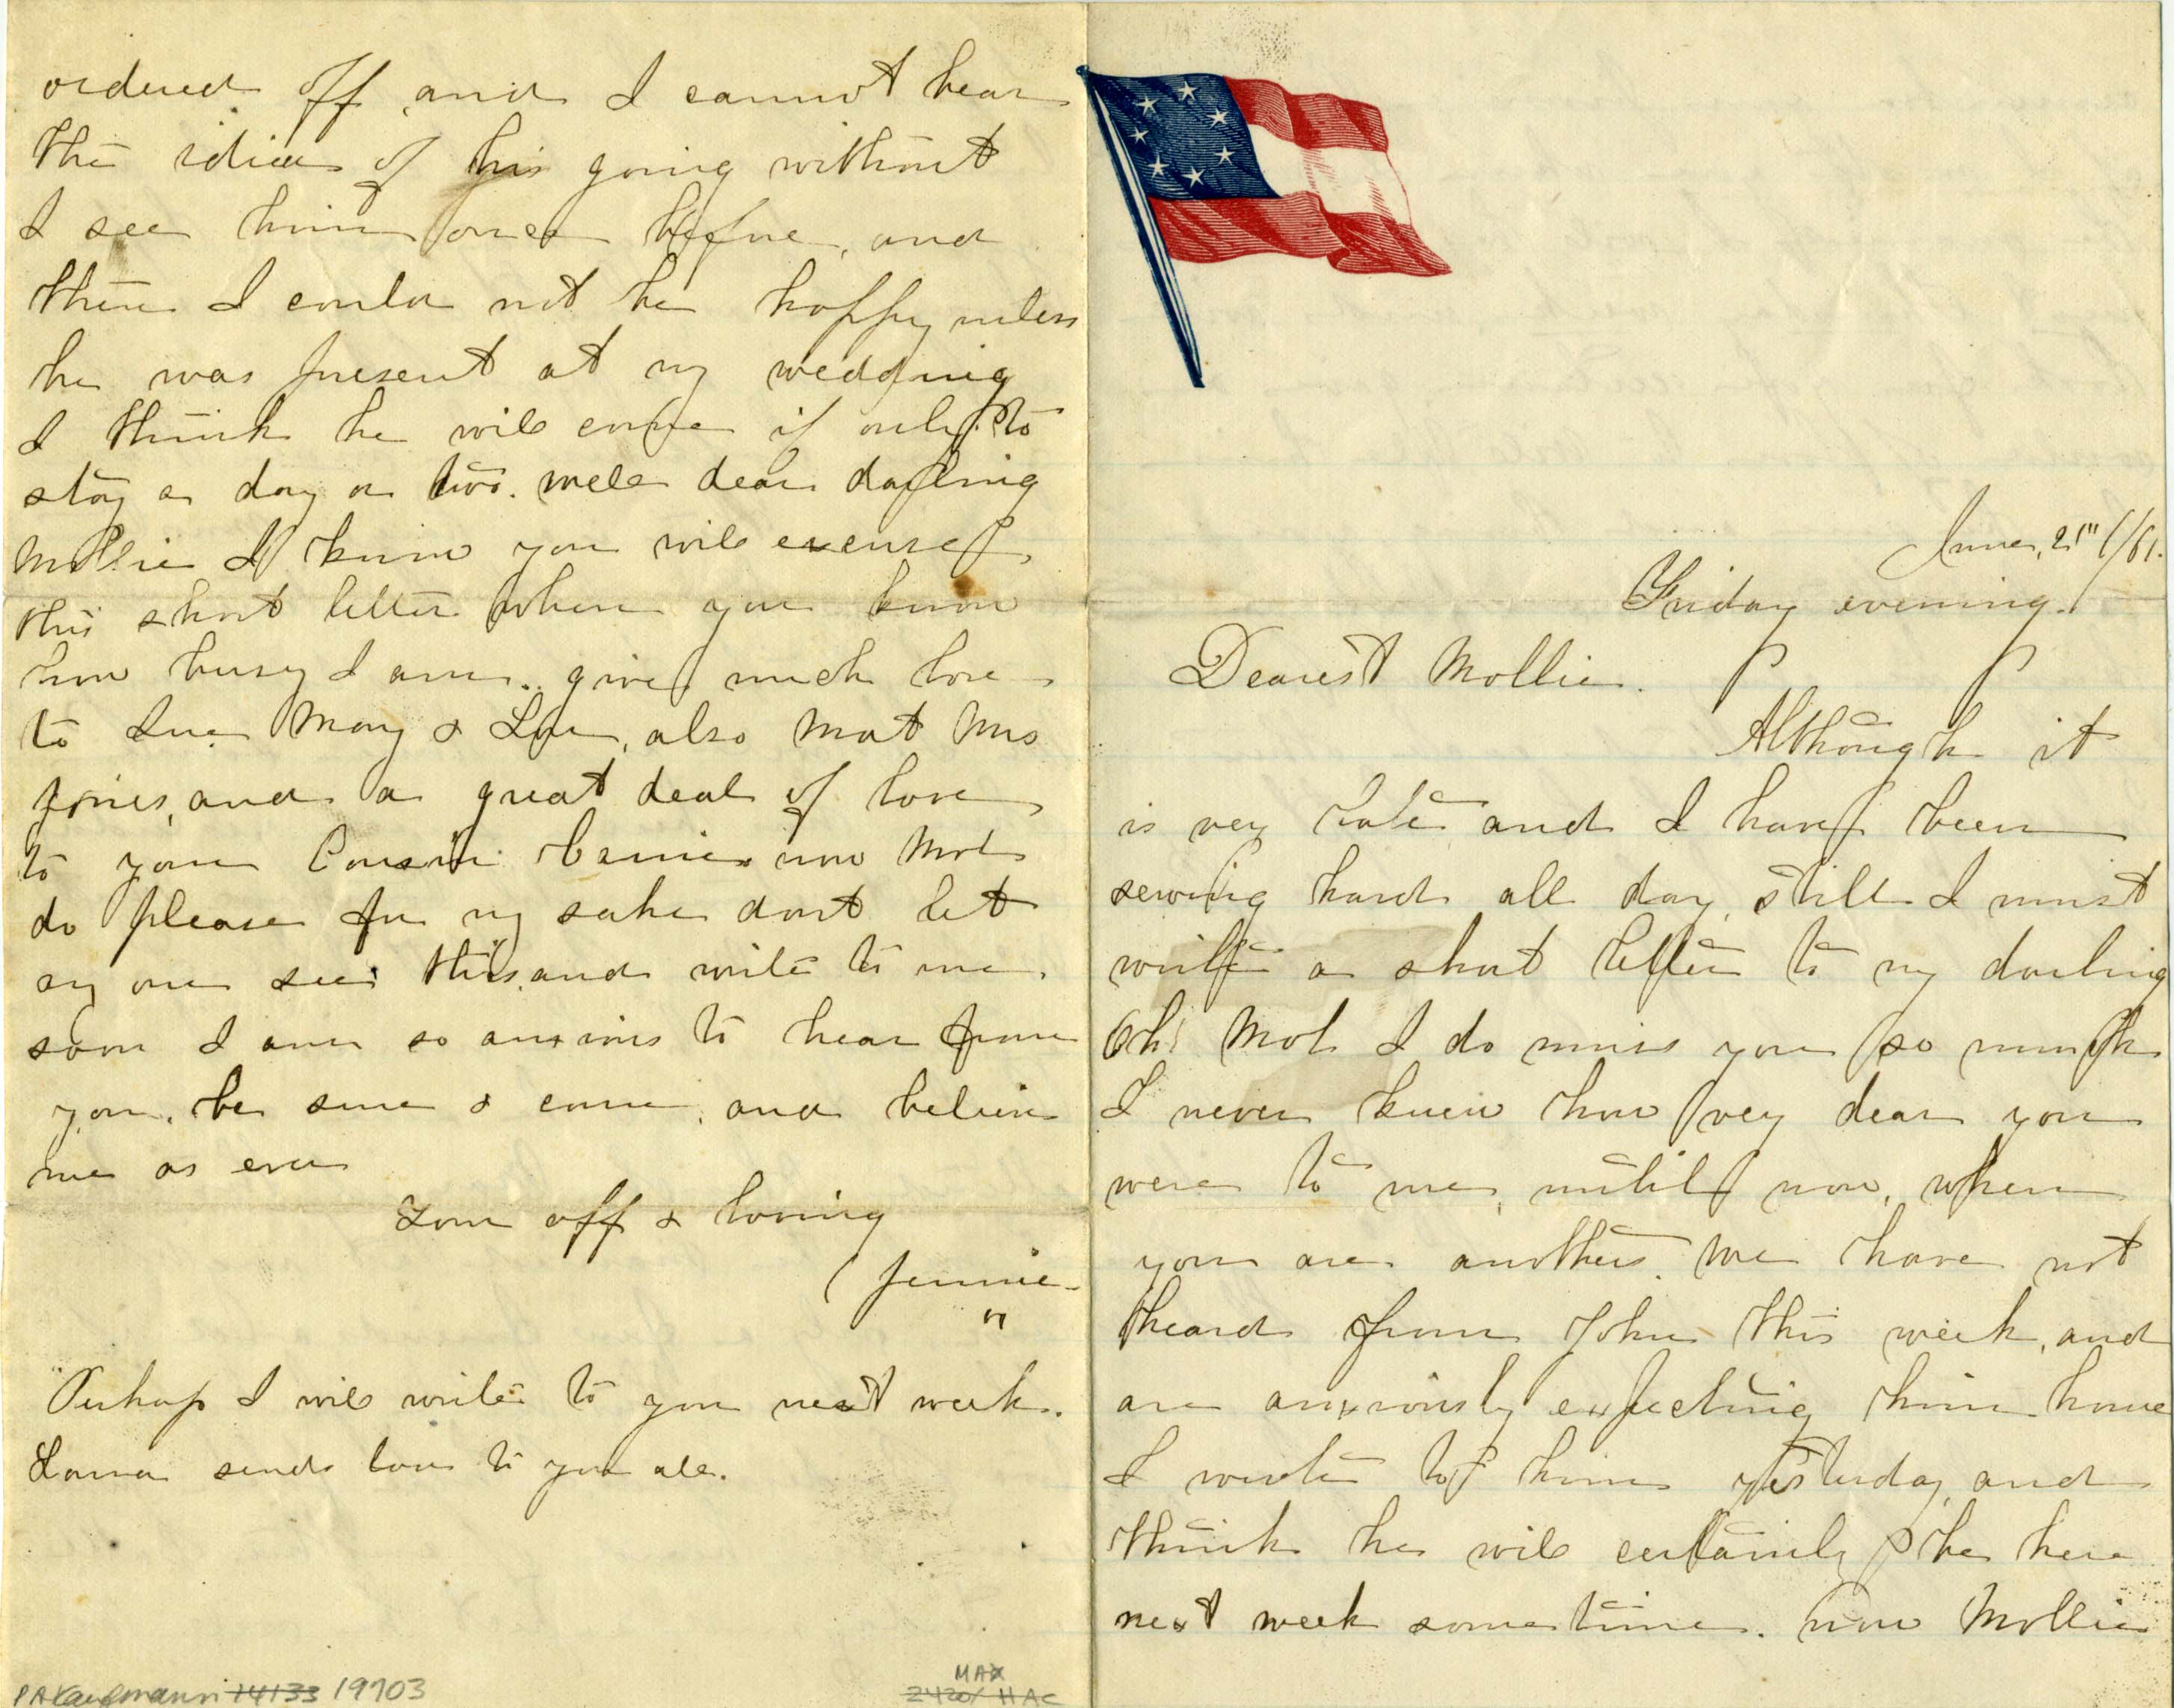 June, 21st /61.
Friday evening.
Dearest Mollie.
Although it
is very late and I have been
sewing hard all day, still I must
write a short letter to my darling
Oh! Mol I do miss you so much
I never knew how very dear you
were to me, until now, when
you are anothers. We have not
heard from John this week, and
are anxiously expecting him home
I wrote to him yesterday, and
think he will certainly be here
next week sometime. Now Mollie
ordered off, and I cannot bear
the idiea of his going without
I see him once before, and
then I could not be happy unless
he was present at my wedding
I think he will come if only to
stay a day or two. Well dear darling
Mollie I know you will excuse
this short letter when you know
how busy I am. give much love
to Sue Mary & Lou, also Mat Mrs
Jones, and a great deal of love
to your Cousin now Mol
do please for my sake dont let
any one see this, and write to me
soon I am so anxious to hear from
you, be sure & come, and believe
me as ever
Your aff & loving
Jennie
Perhaps I will write to you next week.
sends love to you all.
PAKaufmann 14133 19703
MAX